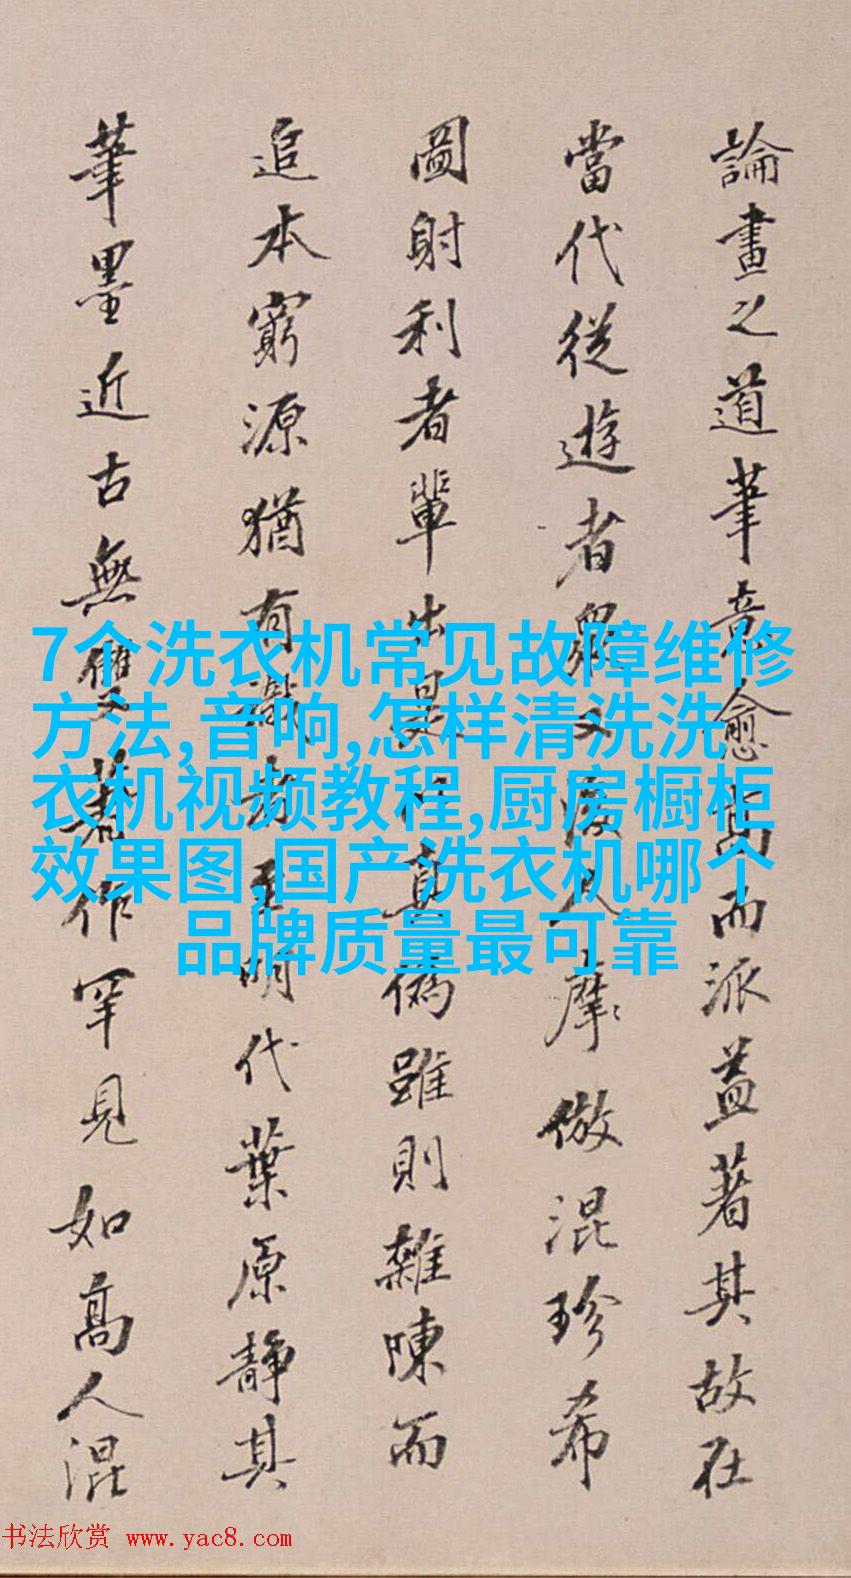 論畫之道筆意愈高而派益著其故在
當代從遊者眾又後人摩倣混珍希
圖射利者輩出是以真偽雖則雜陳而
追本窮源猶有識者至明代葉原靜其
筆墨近古無雙又著作罕見如高人混
7个洗衣机常见故障维修
方法,音响,怎样清洗洗
衣机视频教程,厨房橱柜
效果图,国产洗衣机哪个
品牌质量最可靠
书法欣赏 www.yac8.com